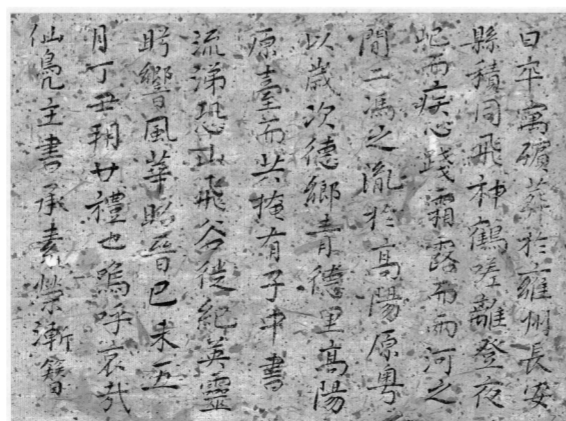 日卒寓殯葬於雍州長安
縣積同飛神鶴嗟離登夜
屺而疚心踐霜露而
間二馮之胤於高陽原粤
以歲次德鄉青德里高陽
原臺而共掩有子中書
流涕恐山飛谷徙紀英靈
盻響風華昭晉已未五
月丁丑朔廿禮也嗚呼哀哉
仙鳧主書承素滎漸簪